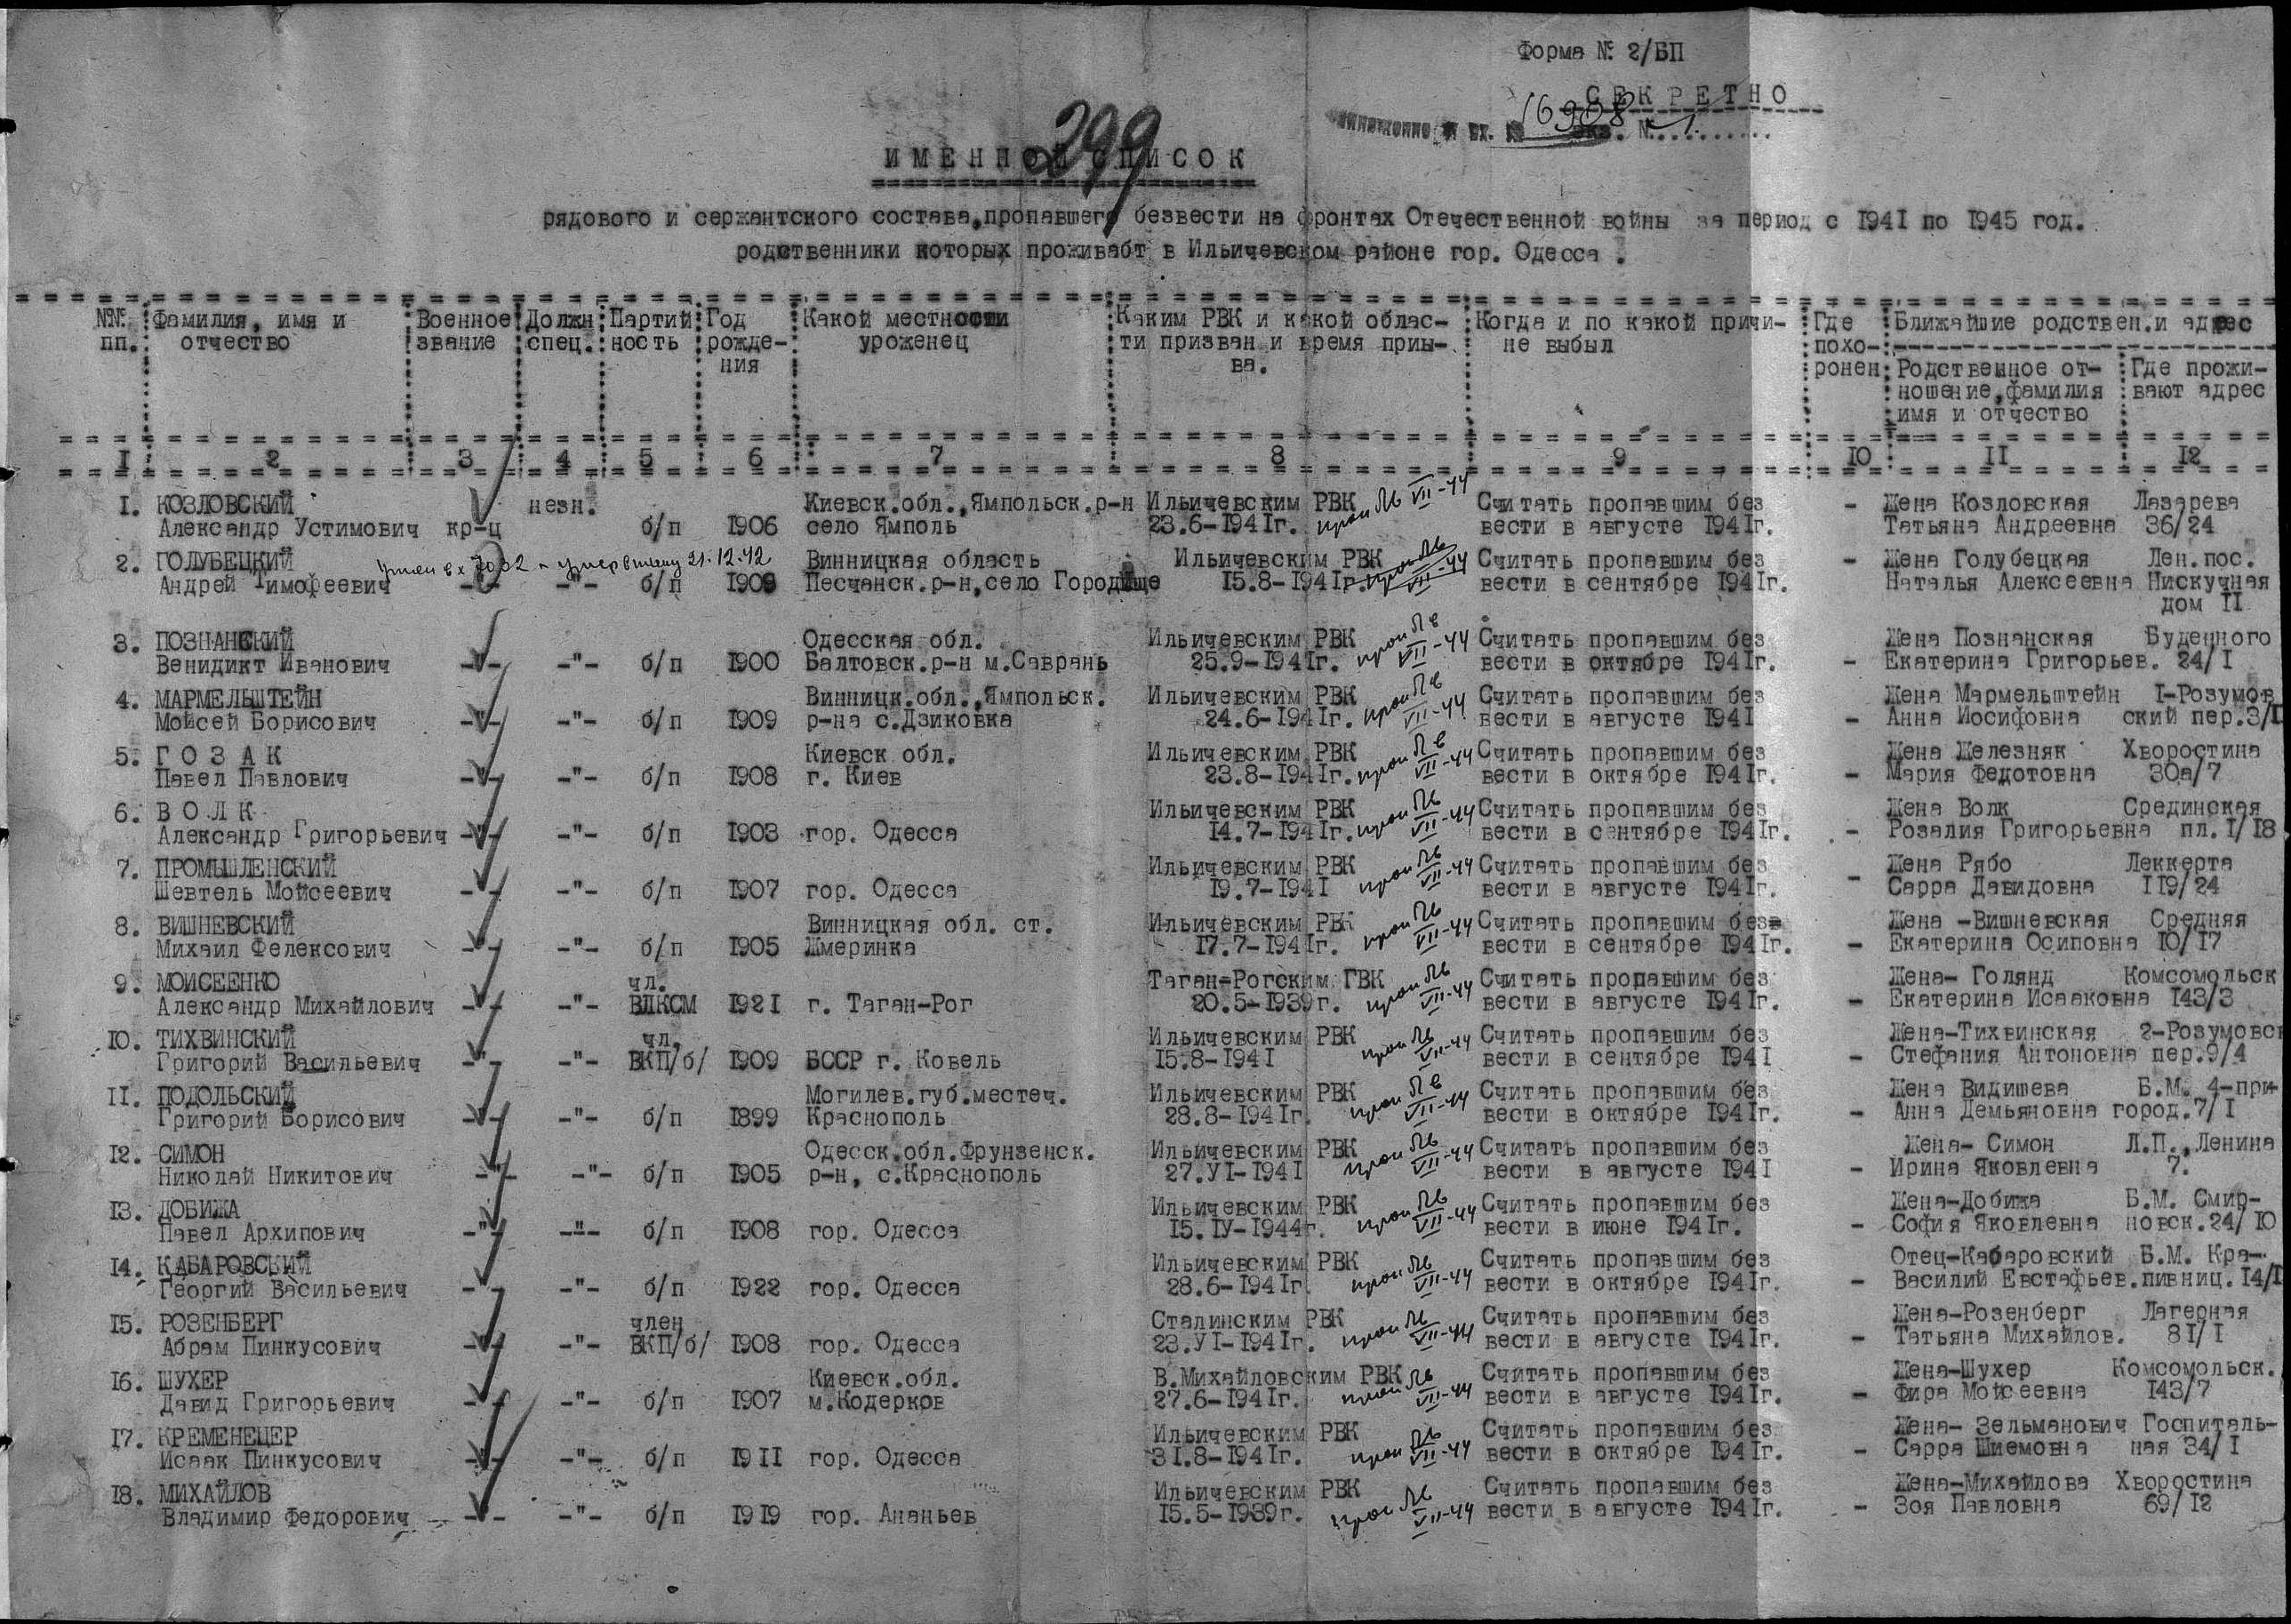 Форма № 2/БП
СЕКРЕТНО
16908
вх. № экз. № 1
299
ИМЕННОЙ СПИСОК
рядового и сержантского состава,пропавшего безвести на фронтах Отечественной войны за период с 1941 по 1945 год.
родственники которых проживабт в Ильичевском районе гор. Одесса .
№№ Фамилия, имя и Военное Должн Партий Год Какой местности Каким РВК и какой облас- Когда и по какой причи- Где Ближайшие родствен.и адрес
пп. отчество звание спец. ность рожде- уроженец ти призван и время приы- не выбыл похо-
ния ва. ронен Родственное от- Где прожи-
ношение,фамилия вают адрес
имя и отчество
1 2 3 4 5 6 7 8 9 10 11 12
1. КОЗЛОВСКИЙ незн. Киевск.обл.,Ямпольск.р-н Ильичевским РВК VII-44 Считать пропавшим без - Жена Козловская Лазарева
Александр Устимович кр-ц б/п 1906 село Ямполь 23.6-1941г. вести в августе 1941г. Татьяна Андреевна 36/24
2. ГОЛУБЕЦКИЙ 21.12.42 Винницкая область Ильичевским РВК Считать пропавшим без - Жена Голубецкая Лен.пос.
Андрей Тимофеевич -"- -"- б/п 1908 Песчанск.р-н,село Городище 15.8-1941г. VII-44 вести в сентябре 1941г. Наталья Алексеевна Нискучная
дом 11
3. ПОЗНАНСКИЙ Одесская обл. Ильичевским РВК Считать пропавшим без Жена Познанская Буденного
Венидикт Иванович -"- -"- б/п 1900 Балтовск.р-н м.Саврань 25.9-1941г. VII-44 вести в октябре 1941г. - Екатерина Григорьев. 24/1
4. МАРМЕЛЬШТЕЙН Винницк.обл.,Ямпольск. Ильичевским РВК Считать пропавшим без Жена Мармельштейн 1-Розумов
Мойсей Борисович -"- -"- б/п 1909 р-на с.Дзиковка 24.6-1941г. VII-44 вести в августе 1941 - Анна Иосифовна ский пер.3/1
5. ГОЗАК Киевск обл. Ильичевским РВК Считать пропавшим без Жена Железняк Хворостина
Павел Павлович -"- -"- б/п 1908 г. Киев 23.8-1941г. VII-44 вести в октябре 1941г. - Мария Федотовна 30а/7
6. ВОЛК Ильичевским РВК Считать пропавшим без Жена Волк Срединская
Александр Григорьевич -"- -"- б/п 1903 гор. Одесса 14.7-1941г. VII-44 вести в сентябре 1941г. - Розалия Григорьевна пл.1/18
7. ПРОМЫШЛЕНСКИЙ Ильичевским РВК Считать пропавшим без Жена Рябо Леккерта
Шевтель Мойсеевич -"- -"- б/п 1907 гор. Одесса 19.7-1941 VII-44 вести в августе 1941г. - Сарра Давидовна 119/24
8. ВИШНЕВСКИЙ Винницкая обл. ст. Ильичевским РВК Считать пропавшим без Жена -Вишневская Средняя
Михаил Фелексович -"- -"- б/п 1905 Жмеринка 17.7-1941г. VII-44 вести в сентябре 1941г. - Екатерина Осиповна 10/17
9. МОИСЕЕНКО чл. Таган-Рогским ГВК Считать пропавшим без Жена- Голянд Комсомольск
Александр Михайлович -"- -"- ВЛКСМ 1921 г. Таган-Рог 20.5-1939г. VII-44 вести в августе 1941г. - Екатерина Исааковна 143/3
10. ТИХВИНСКИЙ чл. Ильичевским РВК Считать пропавшим без Жена-Тихвинская 2-Розумовс
Григорий Васильевич -"- -"- ВКП/б/ 1909 БССР г. Ковель 15.8-1941 VII-44 вести в сентябре 1941 - Стефания Антоновна пер.9/4
11. ПОДОЛЬСКИЙ Могилев.губ.местеч. Ильичевским РВК Считать пропавшим без Жена Видишева Б.М. 4-при-
Григорий Борисович -"- -"- б/п 1899 Краснополь 28.8-1941г. VII-44 вести в октябре 1941г. - Анна Демьяновна город.7/1
12. СИМОН Одесск.обл.Фрунзенск. Ильичевским РВК Считать пропавшим без Жена- Симон Л.П.,Ленина
Николай Никитович -"- -"- б/п 1905 р-н, с.Краснополь 27.У1-1941 VII-44 вести в августе 1941 - Ирина Яковлевна 7.
13. ДОБИЖА Ильичевским РВК Считать пропавшим без Жена-Добижа Б.М. Смир-
Павел Архипович -"- -"- б/п 1908 гор. Одесса 15.1У-1944г. VII-44 вести в июне 1941г. - София Яковлевна новск.24/10
14. КАБАРОВСКИЙ Ильичевским РВК Считать пропавшим без Отец-Кабаровский Б.М. Кра-
Георгий Васильевич -"- -"- б/п 1922 гор. Одесса 28.6-1941г. VII-44 вести в октябре 1941г. - Василий Евстафьев.пивниц.14/1
15. РОЗЕНБЕРГ член Сталинским РВК Считать пропавшим без Жена-Розенберг Лагерная
Абрам Пинкусович -"- -"- ВКП/б/ 1908 гор. Одесса 23.У1-1941г. VII-44 вести в августе 1941г. - Татьяна Михайлов. 81/1
16. ШУХЕР Киевск.обл. В.Михайловским РВК Считать пропавшим без Жена-Шухер Комсомольск.
Давид Григорьевич -"- -"- б/п 1907 м.Кодерков 27.6-1941г. VII-44 вести в августе 1941г. - Фира Мойсеевна 143/7
17. КРЕМЕНЕЦЕР Ильичевским РВК Считать пропавшим без Жена- Зельманович Госпиталь-
Исаак Пинкусович -"- -"- б/п 1911 гор. Одесса 31.8-1941г. VII-44 вести в октябре 1941г. - Сарра Шиемовна ная 34/1
18. МИХАЙЛОВ Ильичевским РВК Считать пропавшим без Жена-Михайлова Хворостина
Владимир Федорович -"- -"- б/п 1919 гор. Ананьев 15.5-1939г. VII-44 вести в августе 1941г. - Зоя Павловна 69/12